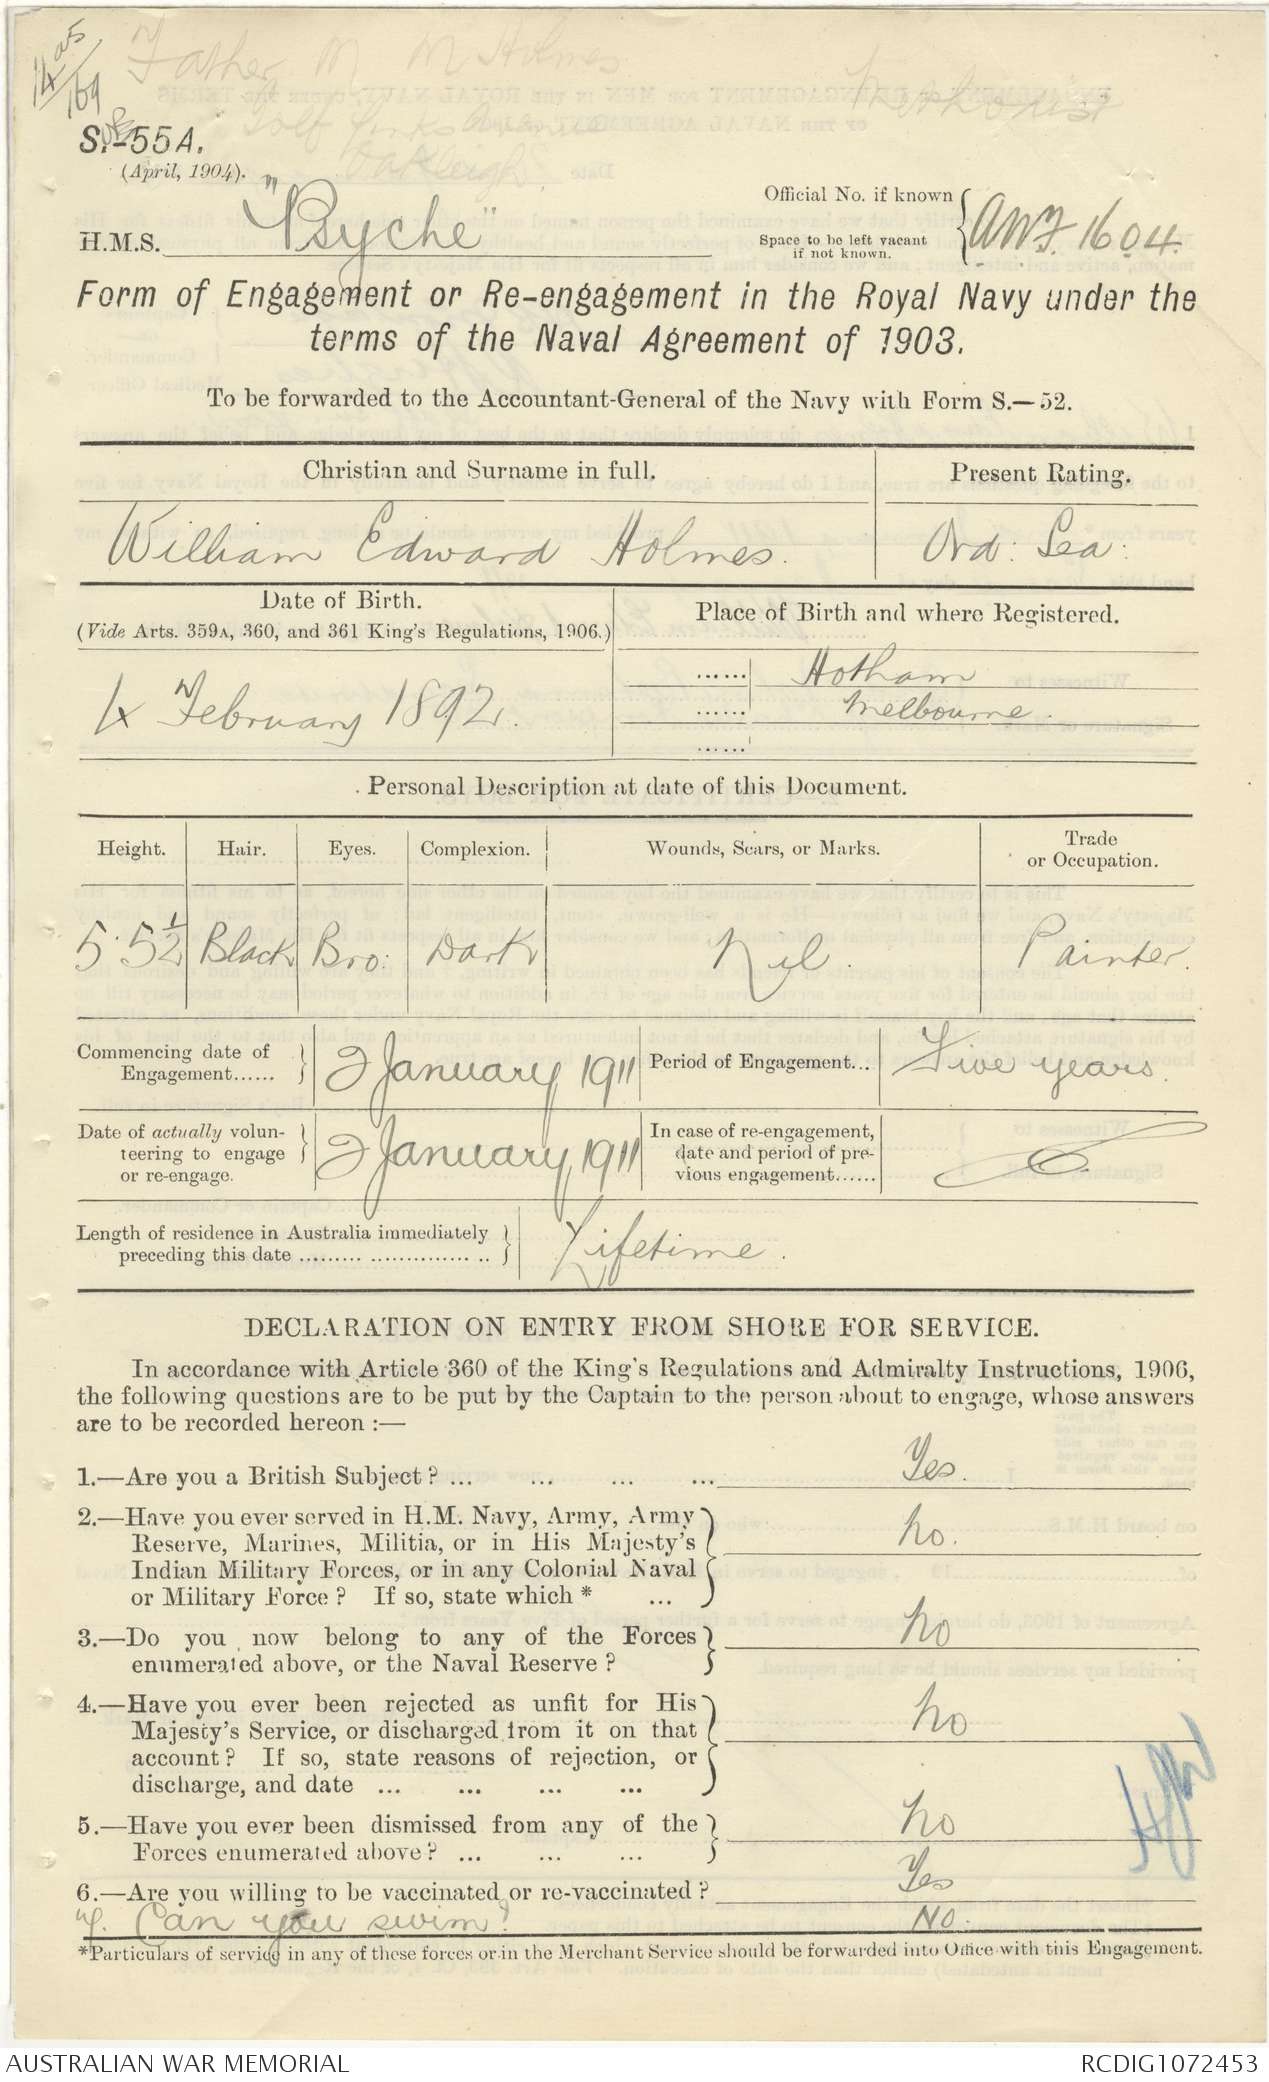 14/169
Father M M Holmes
Methodist
Golf Links Avenue
Oakleigh
S.-55A.
(April, 1904).
H.M.S. "Psyche"
Official No. if known
Space to be left vacant
if not known.
ANF. 1604
Form of Engagement or Re-engagement in the Royal Navy under the
terms of the Naval Agreement of 1903.
To be forwarded to the Accountant-General of the Navy with Form S.—52.
Christian and Surname in full. Present Rating.
William Edward Holmes. Ord: Sea:
Date of Birth.
(Vide Arts. 359A, 360, and 361 King's Regulations, 1906.)
Place of Birth and where Registered.
4 February 1892.
...... Hotham
...... Melbourne.
......
Personal Description at date of this Document.
Height. Hair. Eyes. Complexion. Wounds, Scars, or Marks. Trade
or Occupation.
5' 5½ Black Bro: Dark Nil. Painter.
Commencing date of
Engagement...... 2 January 1911 Period of Engagement... Five years.
Date of actually volun-
teering to engage
or re-engage. 2 January 1911
In case of re-engagement,
date and period of pre-
vious engagement......
Length of residence in Australia immediately
preceding this date ......... .............. .. Lifetime.
DECLARATION ON ENTRY FROM SHORE FOR SERVICE.
In accordance with Article 360 of the King's Regulations and Admiralty Instructions, 1906,
the following questions are to be put by the Captain to the person about to engage, whose answers
are to be recorded hereon :—
1.—Are you a British Subject? ... ... ... ... Yes.
2.—Have you ever served in H.M. Navy, Army, Army
Reserve, Marines, Militia, or in His Majesty's
Indian Military Forces, or in any Colonial Naval
or Military Force? If so, state which * ... No.
3.—Do you now belong to any of the Forces
enumerated above, or the Naval Reserve? No
4.—Have you ever been rejected as unfit for His
Majesty's Service, or discharged from it on that
account? If so, state reasons of rejection, or
discharge, and date ... ... ... ... No
5.—Have you ever been dismissed from any of the
Forces enumerated above? ... ... ... No
6.—Are you willing to be vaccinated or re-vaccinated? Yes
7. Can you swim? No.
*Particulars of service in any of these forces or in the Merchant Service should be forwarded into Office with this Engagement.
AUSTRALIAN WAR MEMORIAL RCDIG1072453